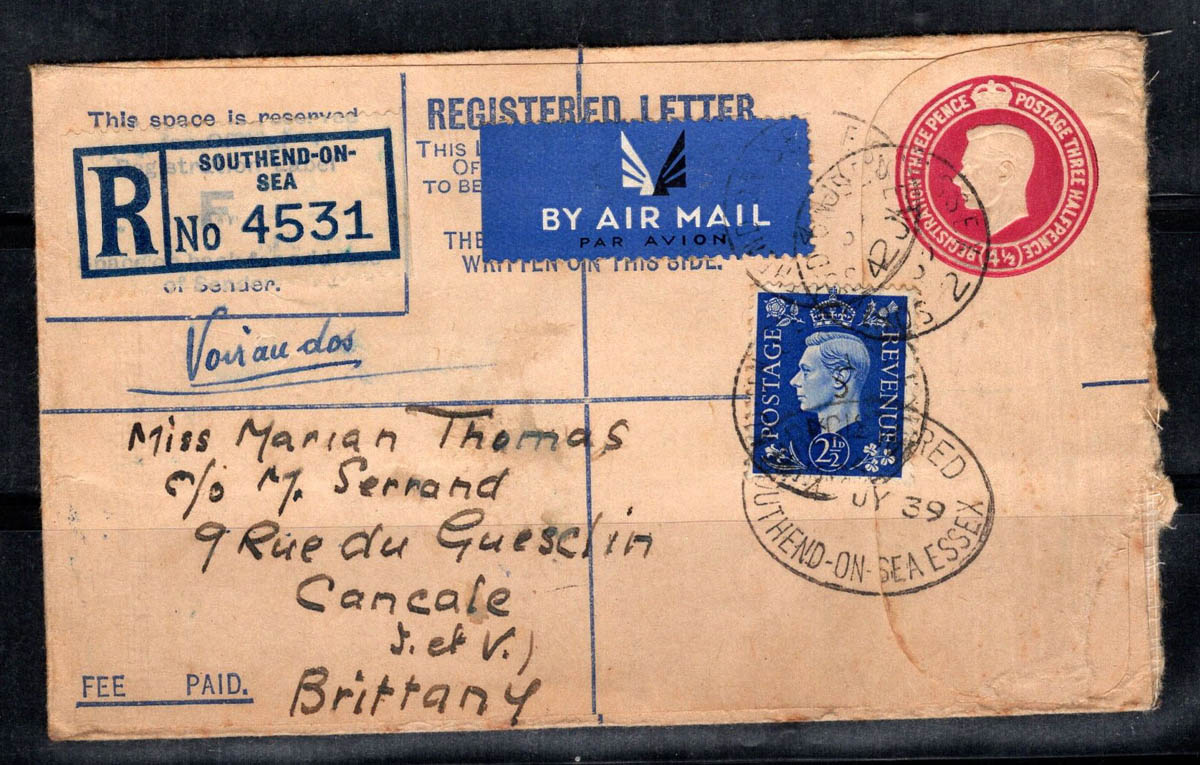 This space is reserved
R
SOUTHEND-ON-
SEA
No 4531
of Sender.
REGISTERED LETTER
THIS
TO BE
WRITTEN ON THIS SIDE.
BY AIR MAIL
PAR AVION
REGISTRATION THREE PENCE POSTAGE THREE HALFPENCE (4½)
POSTAGE REVENUE
2½D
JY 39
SOUTHEND-ON-SEA ESSEX
Voir au dos
Miss Marian Thomas
c/o M. Serrand
9 Rue du Guesclin
Cancale
I. et V.)
Brittany
FEE PAID.